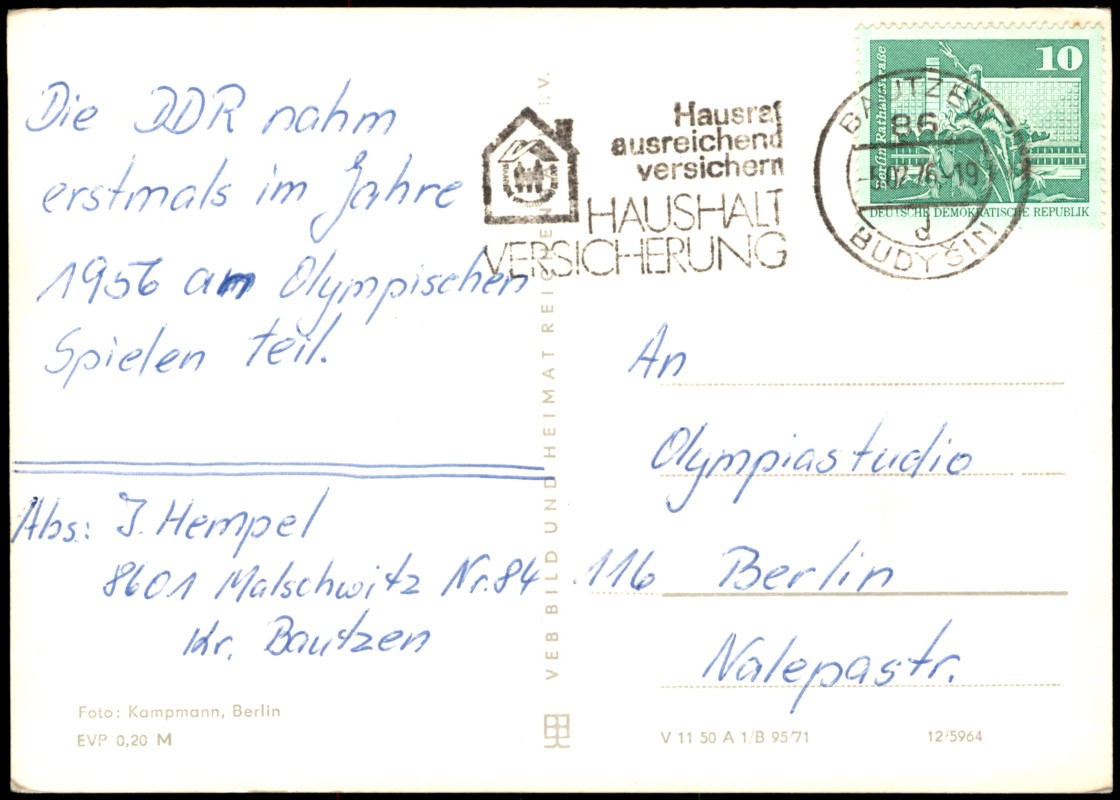 Die DDR nahm
erstmals im Jahre
1956 am Olympischen
Spielen teil.
Abs: J. Hempel
8601 Malschwitz Nr. 84
Kr. Bautzen
Foto: Kampmann, Berlin
EVP 0,20 M
VEB BILD UND HEIMAT REIC I.V.
Hausrat
ausreichend
versichern
HAUSHALT
VERSICHERUNG
BAUTZEN
86
02.76-19
d
BUDYŠIN
10
Berlin, Rathausstraße
DEUTSCHE DEMOKRATISCHE REPUBLIK
An
Olympiastudio
116 Berlin
Nalepastr.
V 11 50 A 1/B 95/71
12/5964